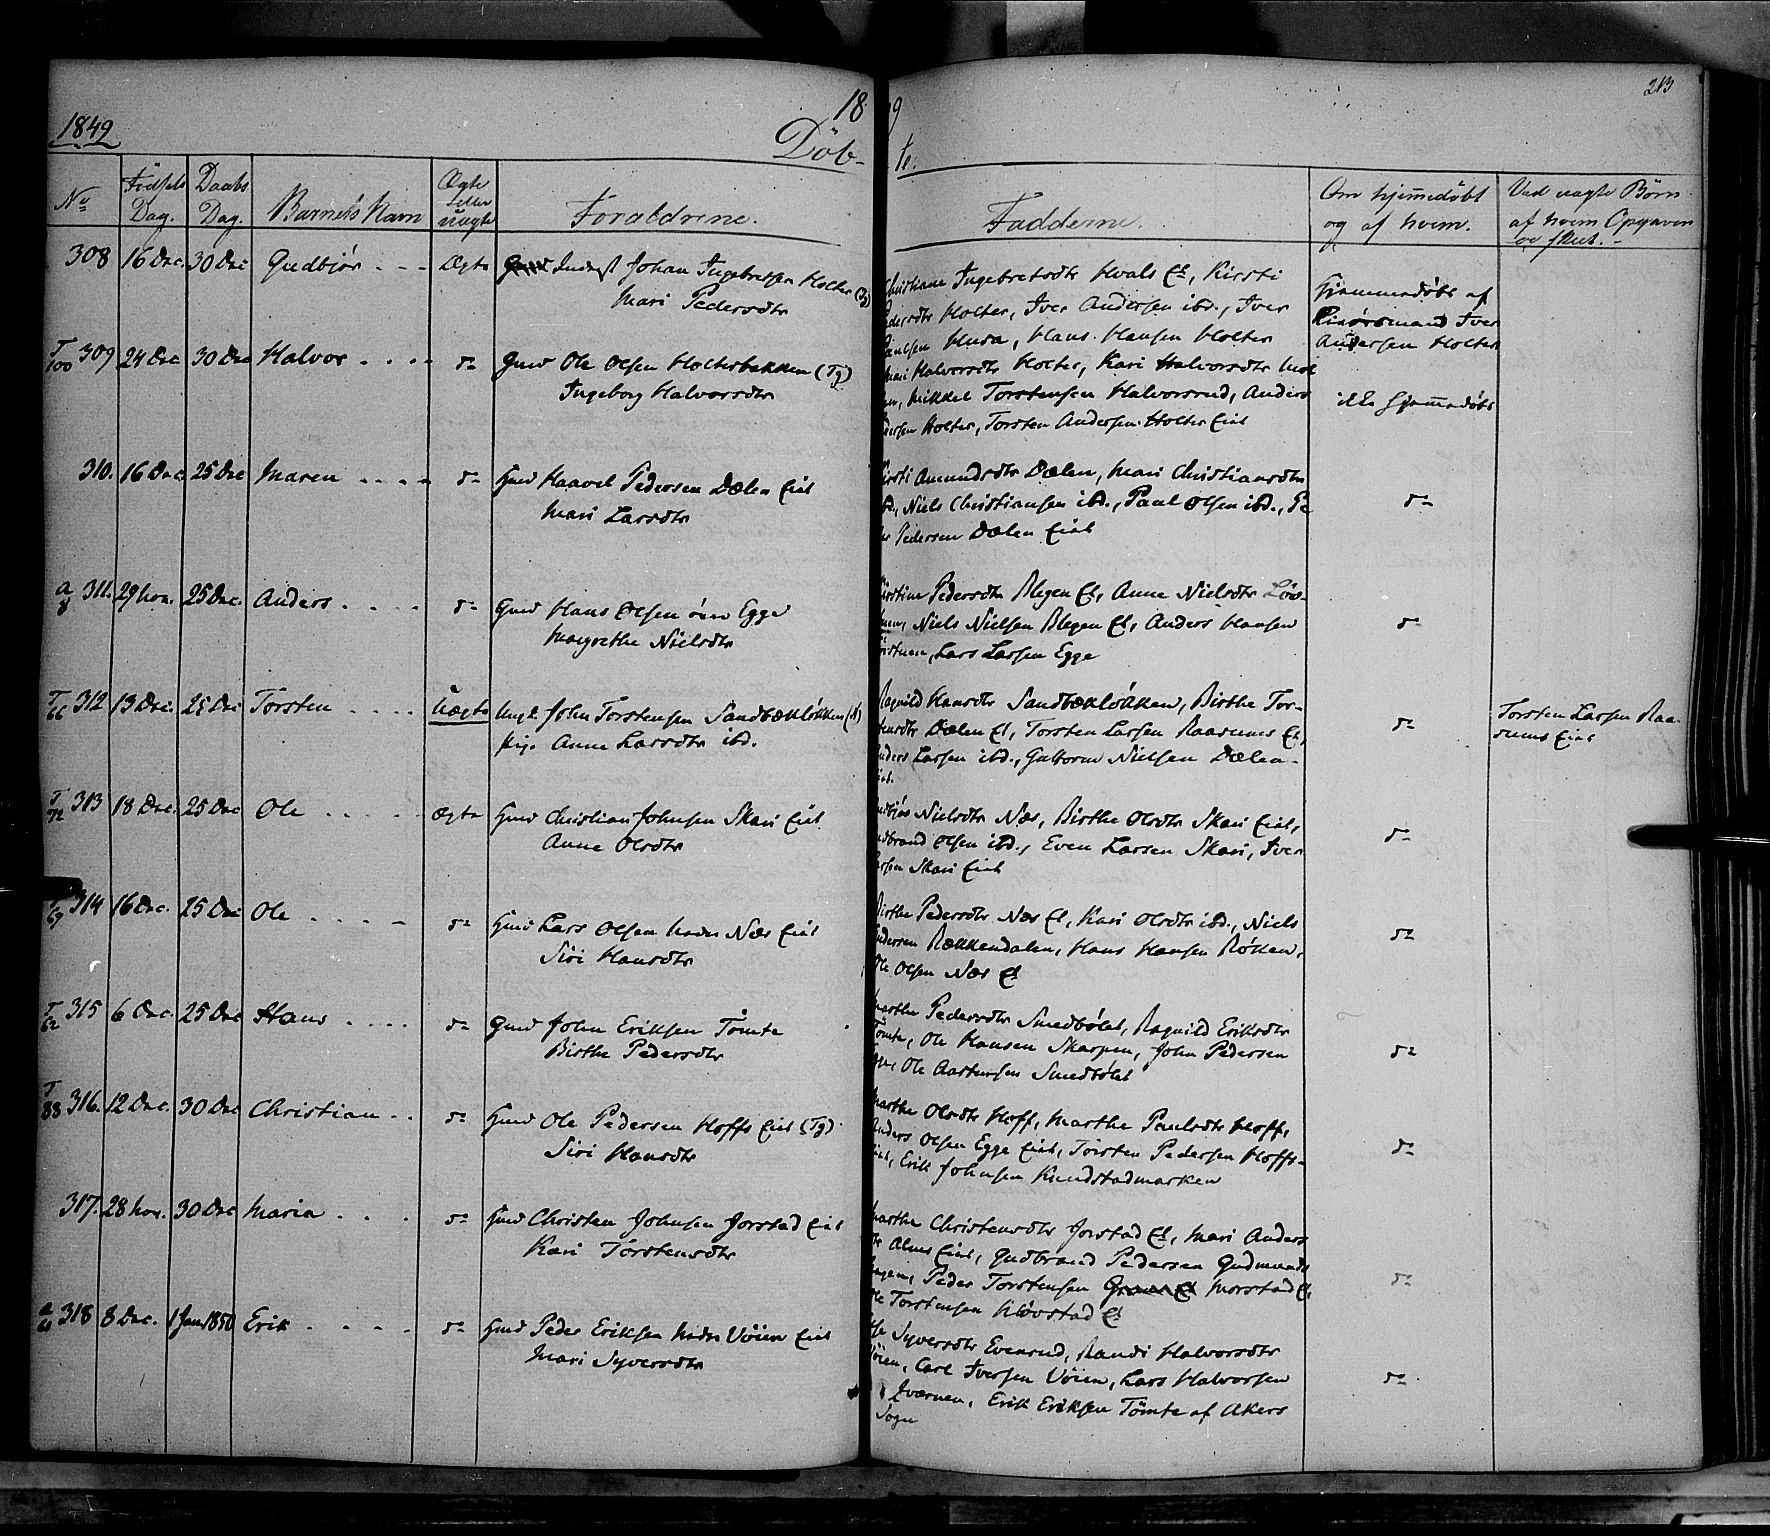 1849
18
Döb-
9
te.
213
No
Födsels Dag.
Daabs Dag.
Barnets Navn
Ægte eller uægte
Forældrene.
Fadderne.
Om hjemmedöbt og af hvem.
Ved uægte Börn af hvem Opgaven er skeet.
308 16 Dec. 30 Dec Gudbjör . . . Ægte Inderst Johan Ingebretsen Holter
Mari Pedersdtr
Ingebretsdtr Hvals Et, Kirsti
Holter, Iver Andersen ibd., Iver
Husa, Hans Hansen Holter
Hjemmedöbt af
Iver
Andersen Holter
T 100 309 24 Dec 30 Dec Halvor . . . . do Gmd Ole Olsen Holterbakken (Tg)
Ingeborg Halvorsdtr
Mari Halvorsdtr Holter, Kari Halvorsdtr
Mikkel Torstensen Halvorsrud, Anders
Holter, Torsten Andersen Holter Eiet
ikke hjemmedöbt
310. 16 Dec. 25 Dec Maren . . . . do Gmd Haavel Pedersen Dælen Eiet
Mari Larsdtr
Kirsti Amundsdtr Dælen, Mari Christiansdtr
ibd., Niels Christiansen ibd., Paul Olsen ibd., Pe
Pedersen Dælen Eiet
do
A 8 311. 29 Nov. 25 Dec. Anders . . . . do Gmd Hans Olsen övre Egge
Margrethe Nielsdtr
Pedersdtr Blegen Et, Anne Nielsdtr
Niels Nielsen Blegen Et, Anders Hansen
Lars Larsen Egge
do
T 66 312 13 Dec. 25 Dec Torsten . . . . Uægte Ungk. John Torstensen Sandbækløkken
Pige Anne Larsdtr ibd.
Ragnild Hansdtr Sandbækløkken, Birthe Tor-
stensdtr Dælen Et, Torsten Larsen Raasums Et,
Anders Larsen ibd., Guttorm Nielsen Dælen-
Eiet.
do
Torsten Larsen Raa-
sums Eiet
T 72 313 18 Dec. 25 Dec Ole . . . . . Ægte Gmd Christian Johnsen Skari Eiet
Anne Olsdtr
Gudbjör Nielsdtr Næs, Birthe Olsdtr Skari Eiet,
Gudbrand Olsen ibd., Even Larsen Skari, Iver
Larsen Skari Eiet
do
T 69 314 16 Dec. 25 Dec Ole . . . . do Gmd Lars Olsen nedre Næs Eiet
Siri Hansdtr
Birthe Pedersdtr Næs Et, Kari Olsdtr ibd., Niels
Andersen Rækkendalen, Hans Hansen Røken,
Ole Olsen Næs Et
do
T 62 315 6 Dec. 25 Dec Hans . . . . do Gmd John Eriksen Tömte
Birthe Pedersdtr
Marthe Pedersdtr Smedbölet, Ragnild Eriksdtr
Tömte, Ole Hansen Skarpen, John Pedersen
Ole Aastensen Smedbölet
do
T 88 316. 12 Dec. 30 Dec Christian . . do Gmd Ole Pedersen Hoffs Eiet (Tg).
Siri Hansdtr
Marthe Olsdtr Hoff, Marthe Paulsdtr Hoff,
Anders Olsen Egge Eiet, Torsten Pedersen Hoffs-
Eiet, Erik Johnsen Kundstadmarken
do
317. 28 Nov. 30 Dec Maria . . . do Gmd Christen Johnsen Jorstad Eiet
Kari Torstensdtr
Marthe Christensdtr Jorstad Et, Mari Anders
dtr Alms Eiet, Gudbrand Pedersen Gudmunds
hagen, Peder Torstensen Morstad Et,
Ole Torstensen Hovstad Et
do
318 8 Dec. 1 Jan. 1850 Erik . . . . do Gmd Peder Eriksen nedre Vöien Eiet
Mari Syversdtr
Syversdtr Evenrud, Randi Halvorsdtr
Vöien, Carl Iversen Vöien, Lars Halvorsen
Erik Eriksen Tömte af Akers
Sogn
do